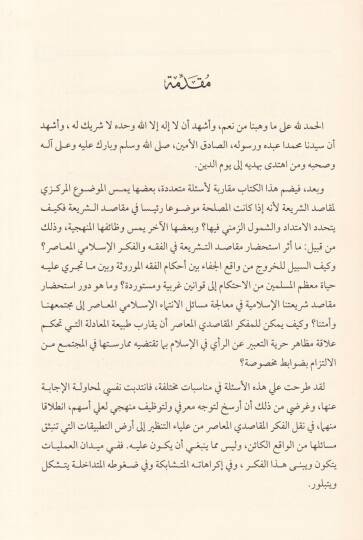 مُقَدِّمَة
الحمد لله على ما وهبنا من نعم، وأشهد أن لا إله إلا الله وحده لا شريك له ، وأشهد أن
سيدنا محمدا عبده ورسوله، الصادق الأمين، صلى الله وسلم وبارك عليه وعلى آله
وصحبه ومن اهتدى بهديه إلى يوم الدين.
وبعد، فيضم هذا الكتاب مقاربة لأسئلة متعددة، بعضها يمس الموضوع المركزي
لمقاصد الشريعة لأنه إذا كانت المصلحة موضوعا رئيسا في مقاصد الشريعة فكيف
يتحدد الامتداد والشمول الزمني فيها؟ وبعضها الآخر يمس وظائفها المنهجية، وذلك
من قبيل: ما أثر استحضار مقاصد التشريعة في الفقه والفكر الإسلامي المعاصر؟
وكيف السبيل للخروج من واقع الجفاء بين أحكام الفقه الموروثة وبين ما تجري عليه
حياة معظم المسلمين من الاحتكام إلى قوانين غريبة ومستوردة؟ وما هو دور استحضار
مقاصد شريعتنا الإسلامية في معالجة مسائل الانتماء الإسلامي المعاصر إلى مجتمعنا
وأمتنا؟ وكيف يمكن للمفكر المقاصدي المعاصر أن يقارب طبيعة المعادلة التي تحكم
علاقة مظاهر حرية التعبير عن الرأي في الإسلام بما تقتضيه ممارستها في المجتمع من
الالتزام بضوابط مخصوصة؟
لقد طرحت علي هذه الأسئلة في مناسبات مختلفة، فانتدبت نفسي لمحاولة الإجابة
عنها، وغرضي من ذلك أن أرسخ لتوجه معرفي ولتوظيف منهجي لعلي أسهم، انطلاقا
منهما، في نقل الفكر المقاصدي المعاصر من علياء التنظير إلى أرض التطبيقات التي تنبثق
مسائلها من الواقع الكائن، وليس مما ينبغي أن يكون عليه. ففي ميدان العمليات
يتكون ويبنى هذا الفكر ، وفي إكراهاته المتشابكة وفي ضغوطه المتداخلة يتشكل
ويتبلور.